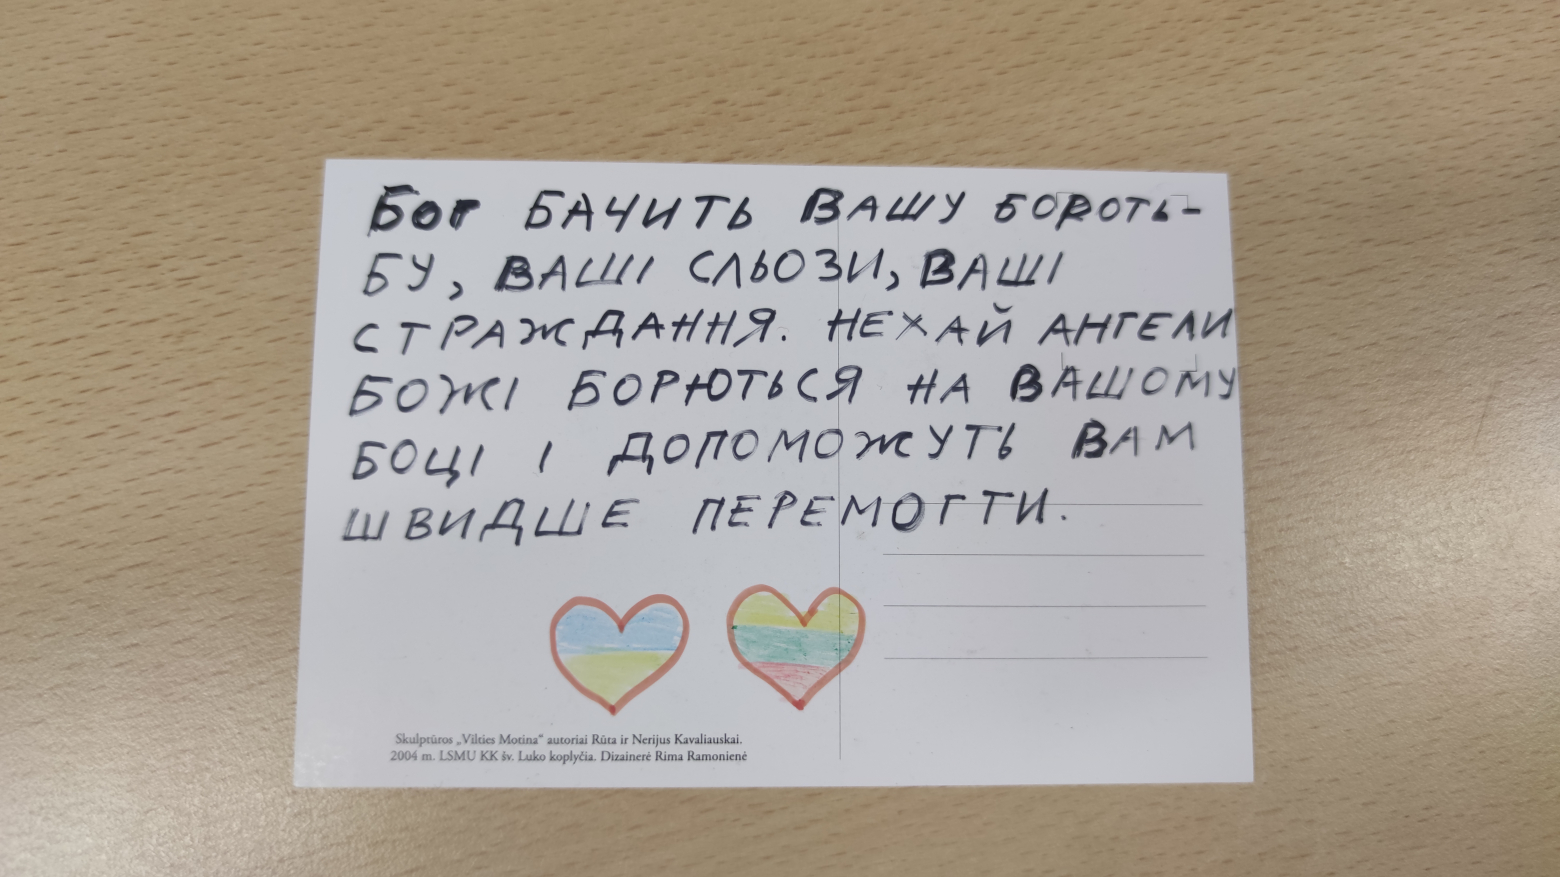 Бог БАЧИТЬ ВАШУ БОРОТЬ-
БУ, ВАШІ СЛЬОЗИ, ВАШІ
СТРАЖДАННЯ. НЕХАЙ АНГЕЛИ
БОЖІ БОРЮТЬСЯ НА ВАШОМУ
БОЦІ І ДОПОМОЖУТЬ ВАМ
ШВИДШЕ ПЕРЕМОГТИ.
Skulptūros „Vilties Motina“ autoriai Rūta ir Nerijus Kavaliauskai.
2004 m. LSMU KK šv. Luko koplyčia. Dizainerė Rima Ramonienė